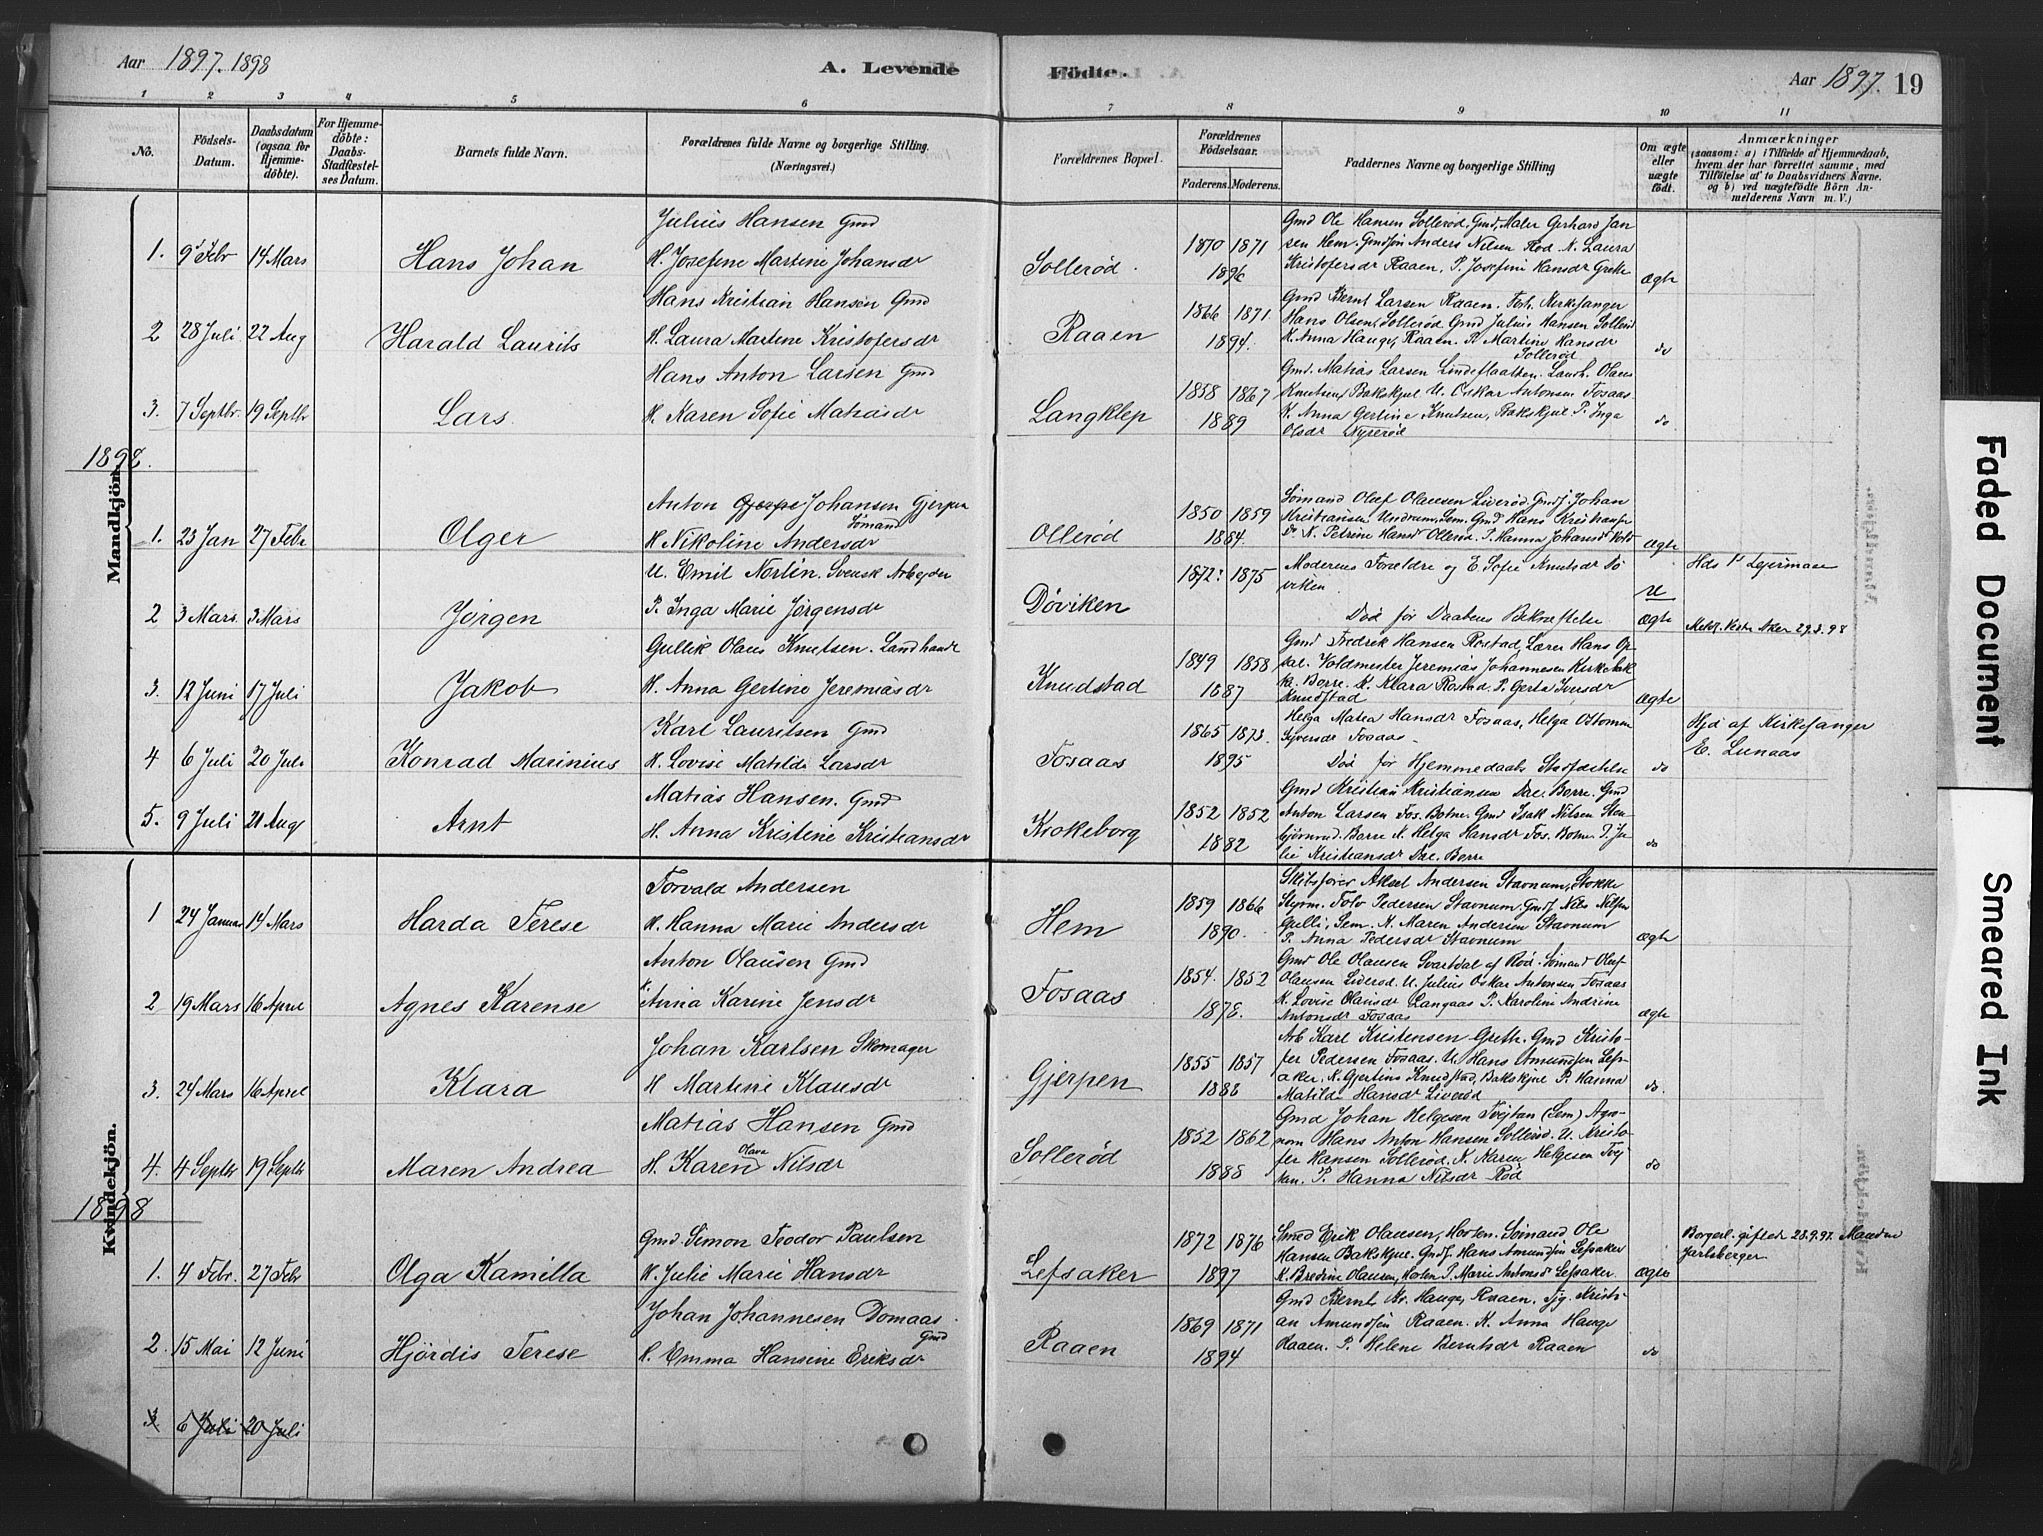 Aar 1897. 1898
A. Levende
Födte.
Aar 1897. 19
1 2 3 4 5 6 7 8 9 10 11
No.
Födsels-Datum.
Daabsdatum (ogsaa for Hjemme-döbte).
For Hjemme-döbte: Daabs-Stadfæstel-ses Datum.
Barnets fulde Navn.
Forældrenes fulde Navne og borgerlige Stilling.
(Næringsvei.)
Forældrenes Bopæl.
Forældrenes Födselsaar.
Faderens. Moderens.
Faddernes Navne og borgerlige Stilling
Om ægte eller uægte födt.
Anmærkninger
(saasom: a) i Tilfælde af Hjemmedaab, hvem der har forrettet samme, med Tilföielse af to Daabsvidners Navne, og b) ved uægtefödte Börn An-melderens Navn m. V.)
Mandkjön.
1. 9 Febr 14 Mars Hans Johan
Julius Hansen Gmd
H. Josefine Martine Johansdr
Sollerød.
1870 1871
1896
Gmd Ole Hansen Sollerød, Gmd, Maler Gerhard Jan
sen Hem. Gmdsøn Anders Nilsen Rød K. Laura
Kristofersdr Raaen, P. Josefine Hansdr Grette
Ægte
2 28 Juli 22 Aug Harald Laurits
Hans Kristian Hansen Gmd
H. Laura Martine Kristofersdr
Raaen
1866 1871
1894.
Gmd Bernt Larsen Raaen. Fhv. Kirkesanger
Hans Olsen, Sollerød. Gmd Julius Hansen Sollerød
K. Anna Hauge, Raaen. P. Martine Hansdr
Sollerød
do
3. 7 Septbr. 19 Septbr Lars
Hans Anton Larsen Gmd
H. Karen Sofie Matiasdr
Langklep
1858 1867
1889
Gmd. Matias Larsen Lindeflaatten. Landh. Olaus
Knutsen, Bakskjul U. Oskar Antonsen Fosaas
K. Anna Gertine Knutsen, Bakskjul P. Inga
Olsdr Nyrerød
do
1898.
1. 23 Jan 27 Febr Olger
Anton Johansen Gjerpen
Sømand
H Nikoline Andersdr
Ollerød
1850 1859
1884.
Sømand Oluf Olausen Liverød. Gmdf. Johan
Kristiansen Undrum, Sem. Gmd Hans Kristiansen
do K. Petrine Hansdr Ollerød. P. Hanna Johansdr
Ægte
2 3 Mars. 3 Mars Jørgen
U. Emil Nortin. Svensk Arbejder
P. Inga Marie Jørgensdr
Døviken
1872? 1875
Moderens Forældre og E. Sofie Knutsdr Dø
viken.
Død før Daabens Bekræftelse
U
Ægte
Hds 1ste Lejermaal
Meldt Vestre Aker 29.3.98
3. 12 Juni 17 Juli Jakob
Gullik Olaus Knutsen. Landhandl
H. Anna Gertine Jeremiasdr
Knudstad
1849 1858
1887
Gmd Fredrik Hansen Rostad, Lærer Hans Op
sal. Voldmester Jeremias Johannesen Kirkebak
ka, Borre. K. Klara Rostad, P. Gerta Iversdr
Knudstad
Ægte
4 6 Juli 20 Juli Konrad Marinius
Karl Lauritsen Gmd
H. Lovise Matilde Larsdr
Fosaas
1865 1873.
1895
Helga Matea Hansdr Fosaas, Helga Ottomine
Syversdr Fosaas -
Død før Hjemmedaabs Stadfæstelse
do
Hjd af Kirkesanger
E. Lunaas
5. 9 Juli 21 Aug Arnt
Matias Hansen. Gmd
H. Anna Kristine Kristiansdr
Krokeborg
1852 1852
1882
Gmd Kristian Kristiansen Dal. Borre. Gmd
Anton Larsen Fos. Botne. Gmd Isak Nilsen Sten
bjørnrud. Borre K. Helga Hansdr Fos. Botne. P. Ju
lie Kristiansdr Dal. Borre
do
Kvindekjön.
1 24 Januar 14 Mars Harda Terese
Torvald Andersen
H. Hanna Marie Andersdr
Hem
1859 1866
1890.
Skibsfører Aksel Andersen Stavnum, Stokke
Styrm. Tolv Pedersen Stavnum. Gmdf. Nils Nilsen
Gulli, Sem. K. Maren Andersen Stavnum
P. Anna Pedersdr Stavnum
Ægte
2 19 Mars 16 April Agnes Karense
Anton Olausen Gmd
H. Anna Karine Jensdr
Fosaas
1854. 1852
1878.
Gmd Ole Olausen Svartdal af Rød. Sømand Oluf
Olausen Liverød. U. Julius Oskar Antonsen Fosaas
K. Lovise Olausdr Langaas P. Karoline Andrine
Antonsdr Fosaas
Ægte
3. 24 Mars 16 April Klara
Johan Karlsen Skomager
H Martine Klausdr
Gjerpen
1855 1857
1888
Arb Karl Kristensen Greth. Gmd Kristo-
fer Pedersen Fosaas. U. Hans Amundsen Lefs-
aker. K. Gjertine Knudstad, Bakskjul P. Hanna
Matilde Hansdr Liverød
do.
4. 4 Septbr 19 Septbr Maren Andrea
Matias Hansen Gmd
H. Karen Olava Nilsdr
Sollerød
1852 1862
1888
Gmd Johan Helgesen Tvejtan (Sem) Agro-
nom Hans Anton Hansen Sollerød. U. Kristo-
fer Hansen Sollerød. K. Karen Helgesen Tvej
tan. P. Hanna Nilsdr Rød
do
1898
1. 4 Febr. 27 Febr Olga Kamilla
Gmd. Simon Teodor Paulsen
H. Julie Marie Hansdr
Lefsaker
1872 1876
1897
Smed Erik Olausen, Horten. Sømand Ole
Hansen Bakskjul. Gmdf. Hans Amundsen Lefsaker
K. Bredine Olausen, Horten P. Marie Antonsdr Lefsaker
Ægte
Borgerl. giftede 28.9.97.
Jarlsberger
2. 15 Mai 12 Juni Hjørdis Terese
Johan Johannesen Domaas.
Gmd
H. Emma Hansine Eriksdr
Raaen
1869 1871
1894
Gmd Bernt Kr. Hauge, Raaen. Tjg. Kristi-
an Amundsen Raaen. K. Anna Hauge
Raaen. P. Helene Berntsdr Raaen
do
3. 6 Juli 20 Juli
Faded Document
Smeared Ink